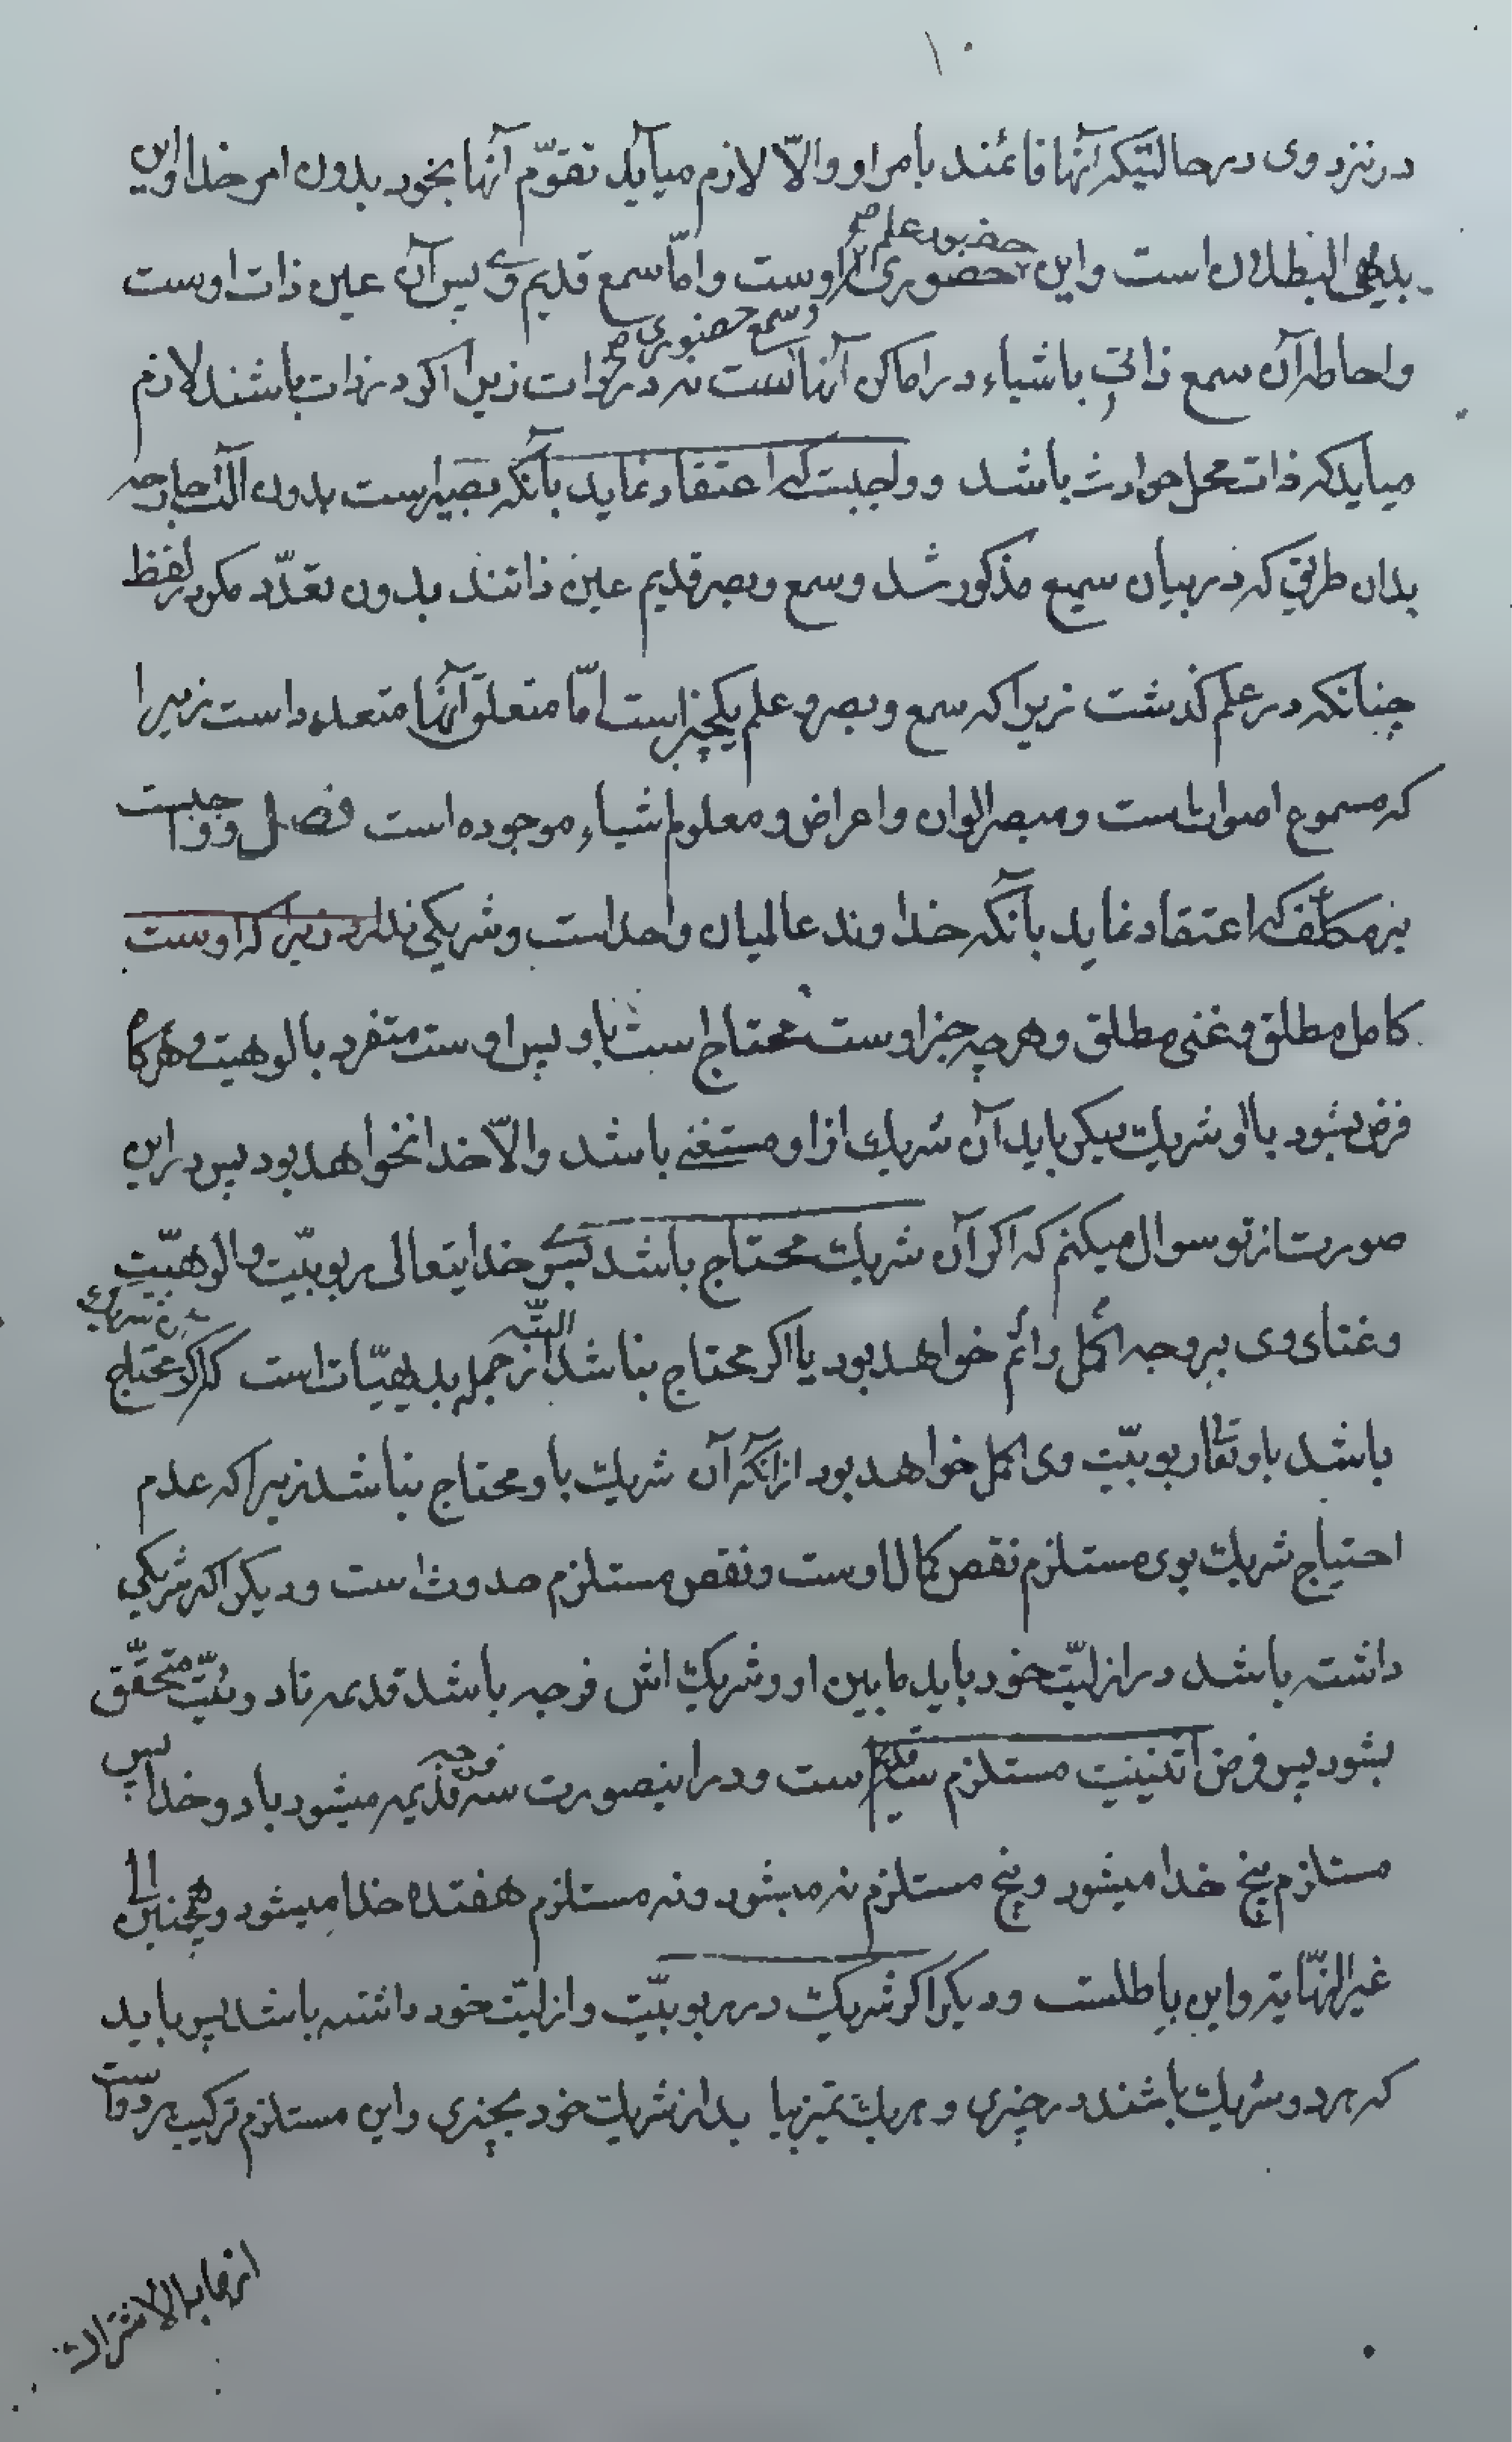 ۱۰
در نزد وی در حالتیکه آنها قائمند بامر او و الّا لازم میآید تقوّم آنها بخود بدون امر خدا و این
بدیهی البطلان است و این حضور علم حضوری اوست و امّا سمع قدیم وی پس آن عین ذات اوست
و سمع حضوری
و احاطه آن سمع ذاتی باشیاء در اماکن آنهاست نه در ذات زیرا اکر در ذات باشند لازم
میاید که ذات محل حوادث باشد و واجبست که اعتقاد نماید بآنکه بصیر است بدون آلت جارحه
بدان طریق که در بیان سمیع مذکور شد و سمع و بصر قدیم عین ذاتند بدون تعدّد مکر در لفظ
چنانکه در علم کذشت زیرا که سمع و بصر و علم یکچیز است امّا متعلق آنها متعدد است زیرا
که مسموع اصوات است و مبصر الوان و اعراض و معلوم اشیاء موجوده است فصل و واجبست
بر مکلّف که اعتقاد نماید بآنکه خداوند عالمیان واحد است و شریکی ندارد زیرا که اوست
کامل مطلق و غنی مطلق و هر چه جز اوست محتاج است باو پس اوست متفرد بالوهیت و هرکاه
فرض بشود با او شریک دیکر باید آن شریک از او مستغنی باشد و الّا خدا نخواهد بود پس در این
صورت از تو سوال میکنم که اکر آن شریک محتاج باشد بسوی خدایتعالی ربوبیّت و الوهیّت
و غنای وی بر وجه اکمل و اتم خواهد بود یا اکر محتاج نباشد البتّه از جمله بدیهیّات است که اکر آن شریک محتاج
باشد باو تعالی ربوبیّت وی اکمل خواهد بود از آنکه آن شریک باو محتاج نباشد زیرا که عدم
احتیاج شریک بوی مستلزم نقص کمال اوست و نقص مستلزم حدوث است و دیکر اکر شریکی
داشته باشد در ازلیّت خود باید مابین او و شریک اش فرجه باشد قدیمه تا دوئیّت متحقّق
بشود پس فرض اثنینیت مستلزم سه قدیم است و در اینصورت سه قدیم میشود فرجه با دو خدا پس
مستلزم پنج خدا میشود و پنج مستلزم نه میشود و نه مستلزم هفتده خدا میشود و همچنین الی
غیر النّهایة و این باطلست و دیکر اکر شریک در ربوبیّت و ازلیّت خود داشته باشد پس باید
که هر دو شریک باشند در چیزی و هر یک تمیز بیابد از شریک خود بچیزی و این مستلزم ترکیب هر دو است
از ما به الاشتراک